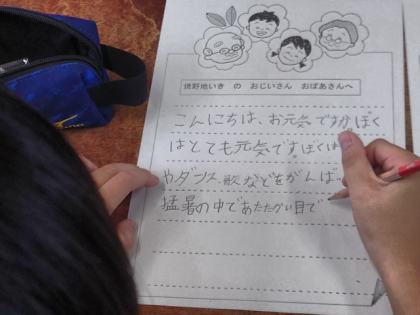 傍野地いき の おじいさん おばあさんへ
こんにちは、お元気ですか。ぼく
はとても元気です。ぼくは
やダンス、歌などをがんば
猛暑の中であたたかい目で